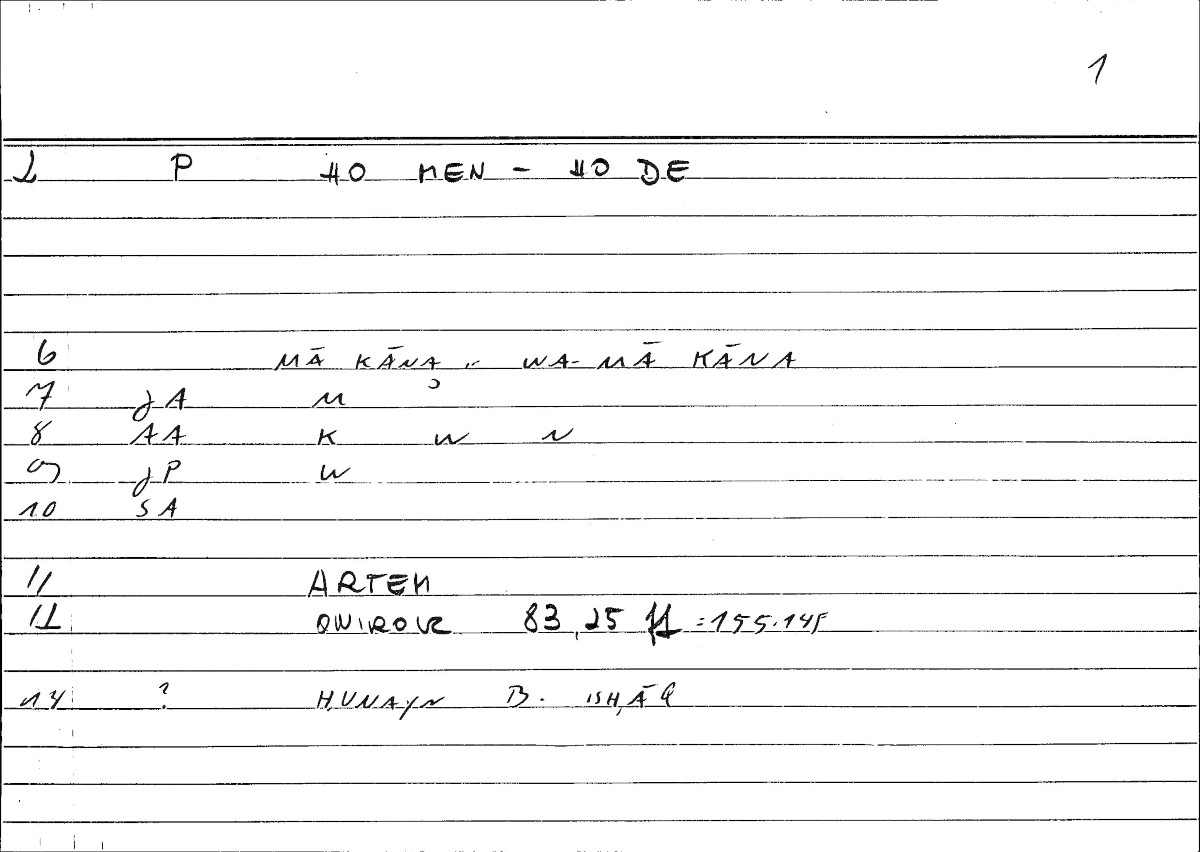 1
2 P HO MEN - HO DE
6 MĀ KĀNA .. WA-MĀ KĀNA
7 jA M ʾ
8 AA K W N
9 jP W
10 SA
11 ARTEM
12 ONIROCR 83,25 ff = 155.145
14 ? ḤUNAYN B. ISḤĀQ